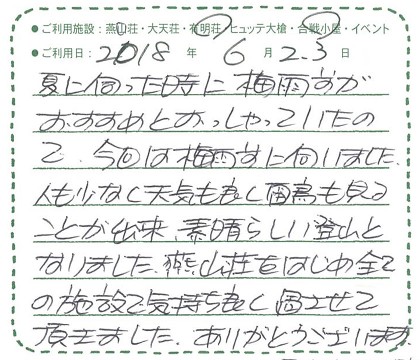 ●ご利用施設：燕山荘・大天荘・有明荘・ヒュッテ大槍・合戦小屋・イベント
●ご利用日：2018年 6月2.3日
夏に伺った時に梅雨前が
おすすめとおっしゃっていたの
で、今回は梅雨前に伺いました。
人も少なく天気も良く雷鳥も見る
ことが出来、素晴らしい登山と
なりました。燕山荘をはじめ全て
の施設で気持ち良く過ごせて
頂きました。ありがとうございます